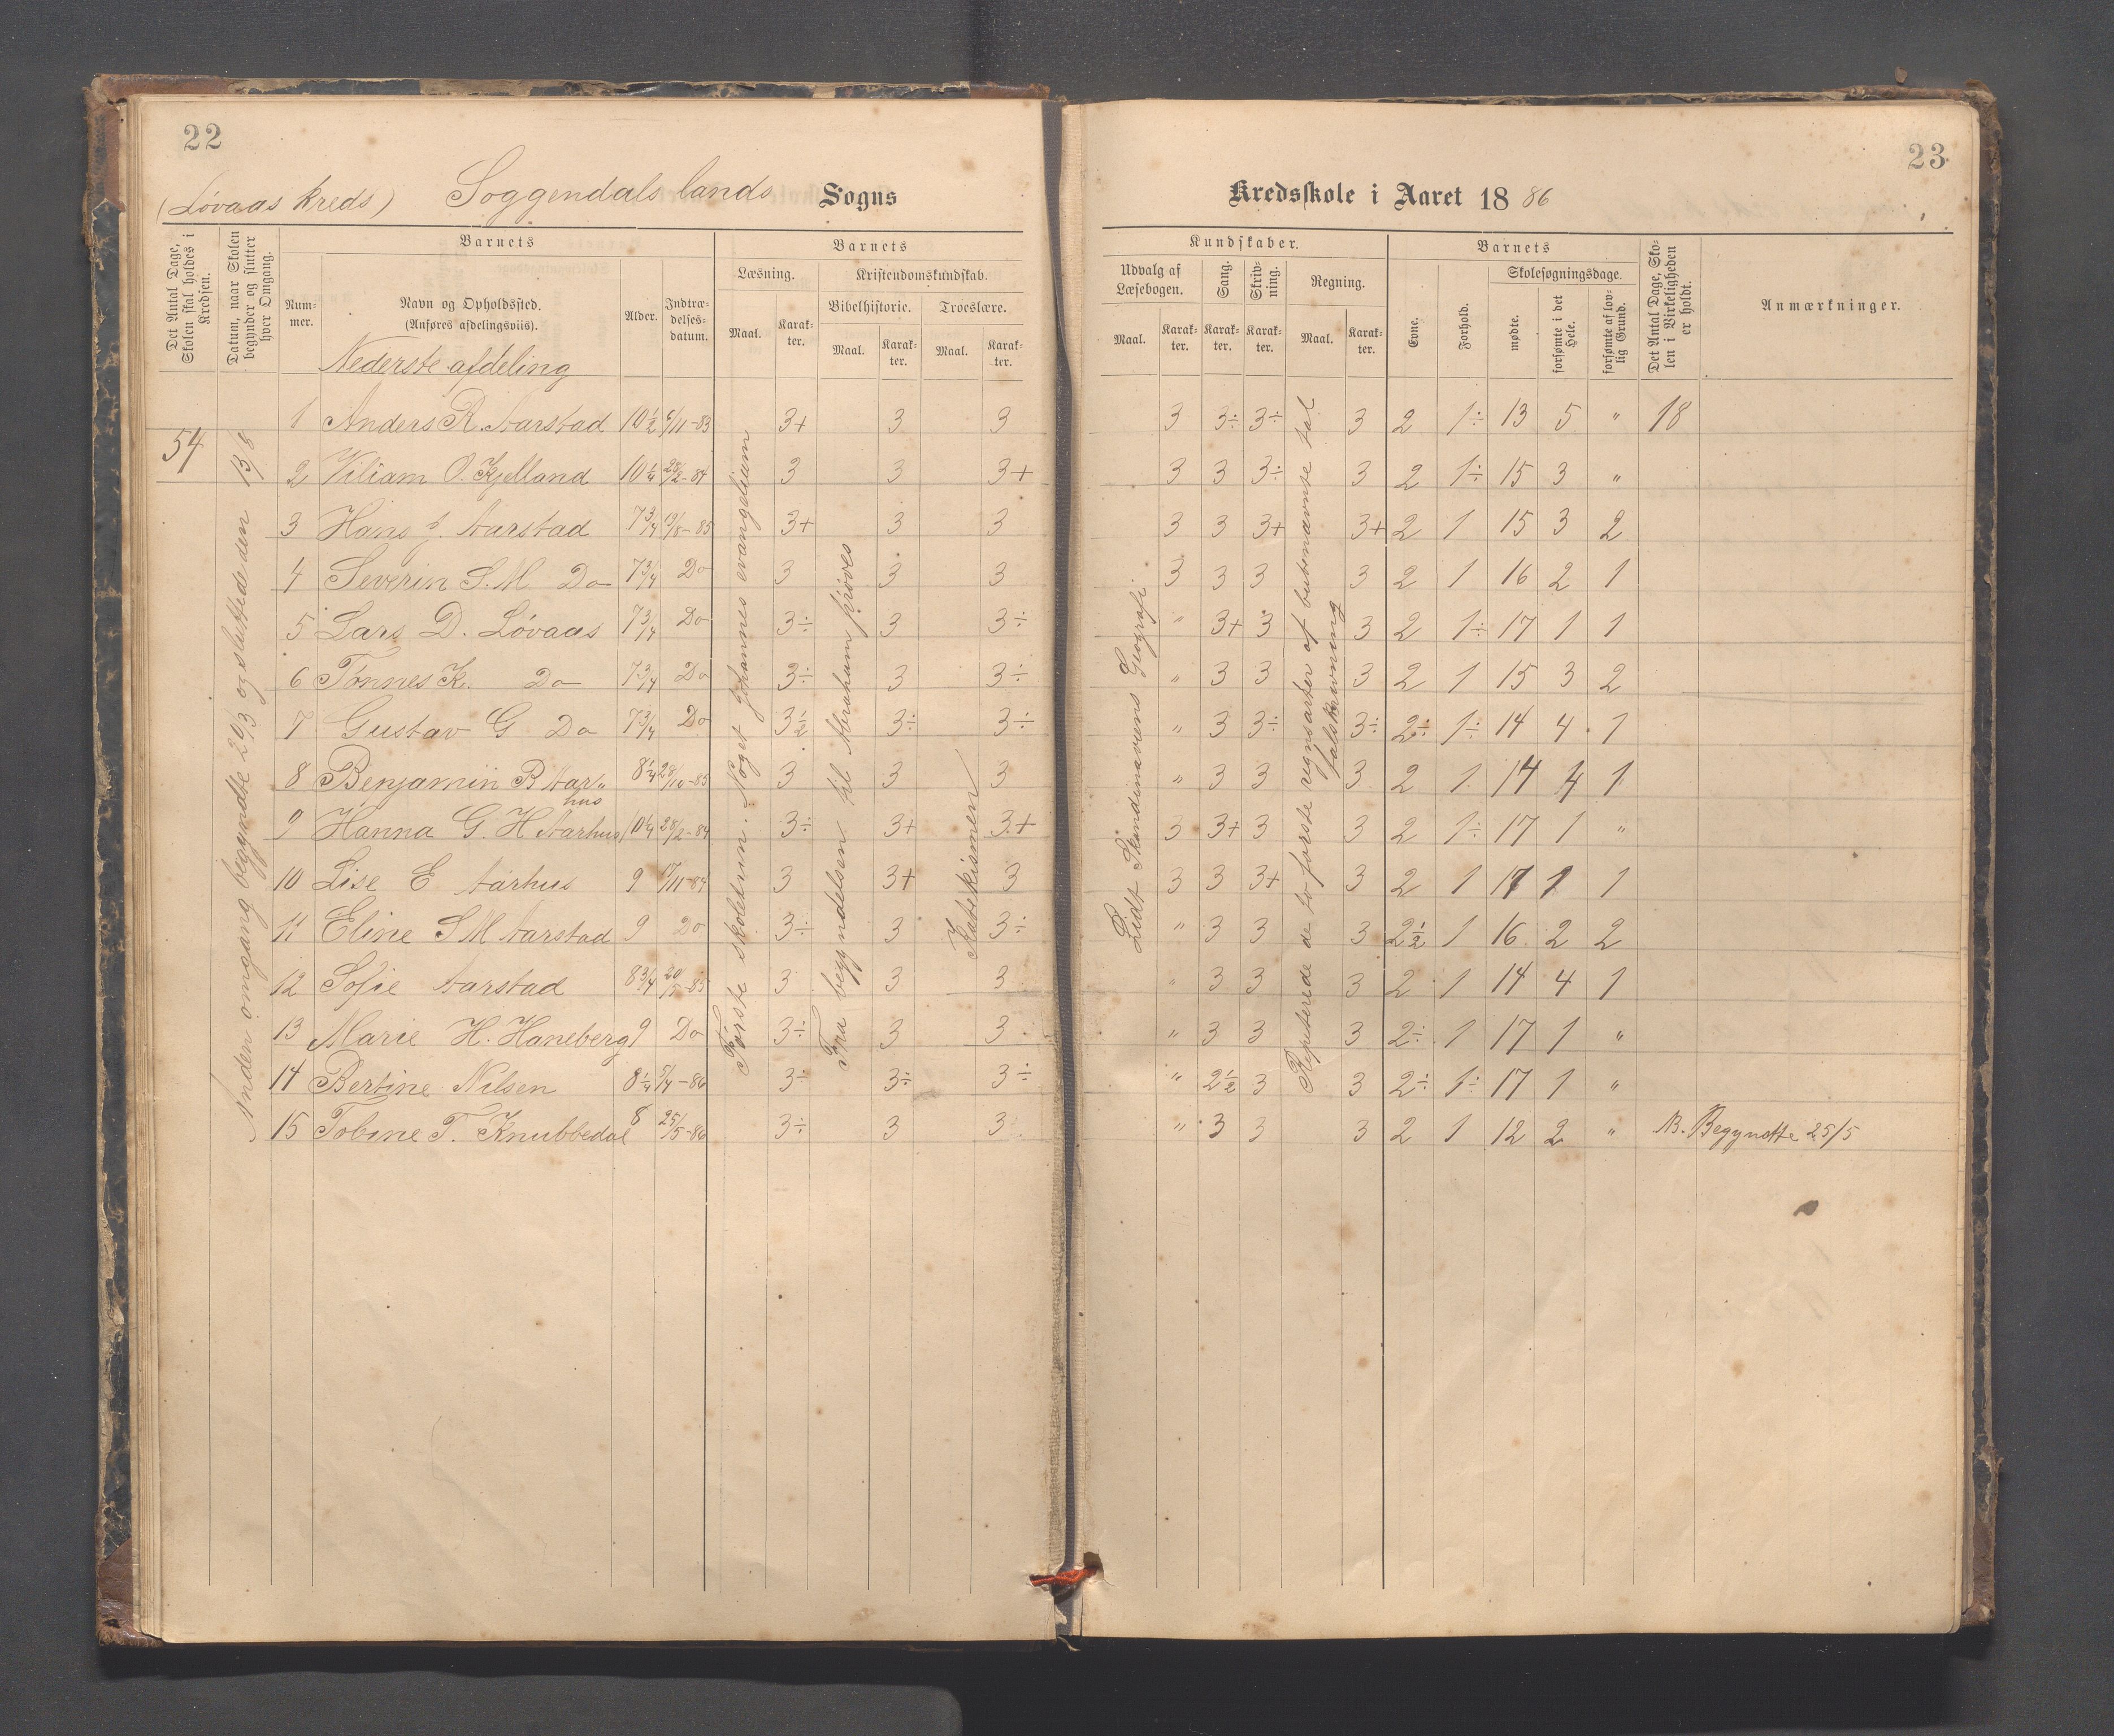 22
(Løvaas kreds) Soggendals lands Sogns
Det Antal Dage, Skolen skal holdes i Kredsen.
Datum, naar Skolen begynder og slutter hver Omgang.
Barnets
Nummer.
Navn og Opholdssted.
(Anføres afdelingsviis).
Alder.
Indtrædelsesdatum.
Barnets
Læsning.
Kristendomskundskab.
Bibelhistorie. Troeslære.
Maal. Karakter. Maal. Karakter. Maal. Karakter.
Nederste afdeling
54
Anden omgang begyndte 20/3 og sluttede den 13/8
1 Anders R. Aarstad 10½ 6/11-83 3+ 3 3
2 Viliam O. Kjelland 10¼ 28/2-84 3 3 3+
3 Hans J. Aarstad 7¾ 19/8-85 3+ 3 3
4 Severin S. M Do 7¾ Do 3 3 3
5 Lars D. Løvaas 7¾ Do 3÷ 3 3÷
6 Tønnes K. Do 7¾ Do 3÷ 3 3÷
7 Gustav G Do 7¾ Do 3½ 3÷ 3÷
8 Benjamin B Aarhus 8¼ 28/10-85 3 3 3
9 Hanna G. H Aarhus 10¼ 28/2-84 3÷ 3+ 3+
10 Lise E Aarhus 9 17/11-84 3 3+ 3
11 Eline S M Aarstad 9 Do 3÷ 3 3÷
12 Sofie Aarstad 8¾ 20/5-85 3 3 3
13 Marie H. Haneberg 9 Do 3÷ 3 3
14 Bertine Nilsen 8¼ 5/4-86 3÷ 3÷ 3÷
15 Tobine T. Knubbedal 8 25/5-86 3÷ 3 3
Første skoletrin. Noget Johannes evangelium
Fra begyndelsen til Abraham prøves
Katekismen
23
Kredsskole i Aaret 1886
Kundskaber.
Udvalg af Læsebogen.
Sang.
Skrivning.
Regning.
Maal. Karakter. Karakter. Karakter. Maal. Karakter.
Barnets
Evne.
Forhold.
Skolesøgningsdage.
mødte.
forsømte i det Hele.
forsømte af lovlig Grund.
Det Antal Dage, Skolen i Virkeligheden er holdt.
Anmærkninger.
3 3÷ 3÷ 3 2 1÷ 13 5 " 18
3 3 3÷ 3 2 1÷ 15 3 "
3 3 3+ 3+ 2 1 15 3 2
3 3 3 3 2 1 16 2 1
" 3+ 3 3 2 1÷ 17 1 1
" 3 3 3 2 1 15 3 2
" 3 3÷ 3÷ 2÷ 1÷ 14 4 1
" 3 3 3 2 1 14 4 1
3 3+ 3 3 2 1÷ 17 1 "
3 3 3+ 3 2 1 17 1 1
" 3 3 3 2½ 1 16 2 2
" 3 3 3 2 1 14 4 1
" 3 3 3 2÷ 1 17 1 "
" 2½ 3 3 2÷ 1÷ 17 1 "
" 3 3 3 2 1 12 2 " NB. Begyndte 25/5
Lidt Skandinaviens Geografi
Repeterede de to første regnsarter af butenævnte tal